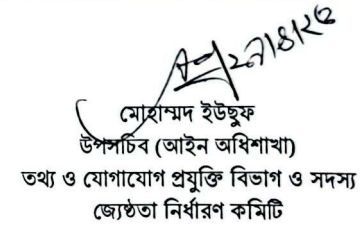 মোহাম্মদ ইউছুফ
উপসচিব (আইন অধিশাখা)
তথ্য ও যোগাযোগ প্রযুক্তি বিভাগ ও সদস্য
জ্যেষ্ঠতা নির্ধারণ কমিটি